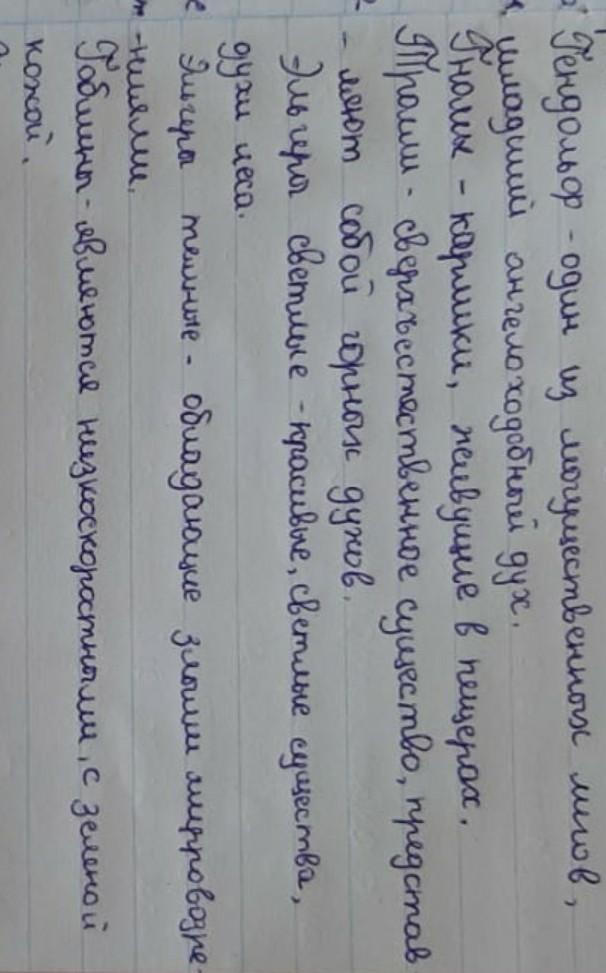 Гендольф - один из могущественных магов,
младший ангелоподобный дух.
Гномы - карлики, живущие в пещерах.
Тролли - сверхъестественное существо, представ
- ляют собой горных духов.
Эльфы светлые - красивые, светлые существа,
духи леса.
Эльфы темные - обладающие злыми мировоззре-
-ниями.
Гоблины - являются низкоскоростными, с зеленой
кожой.